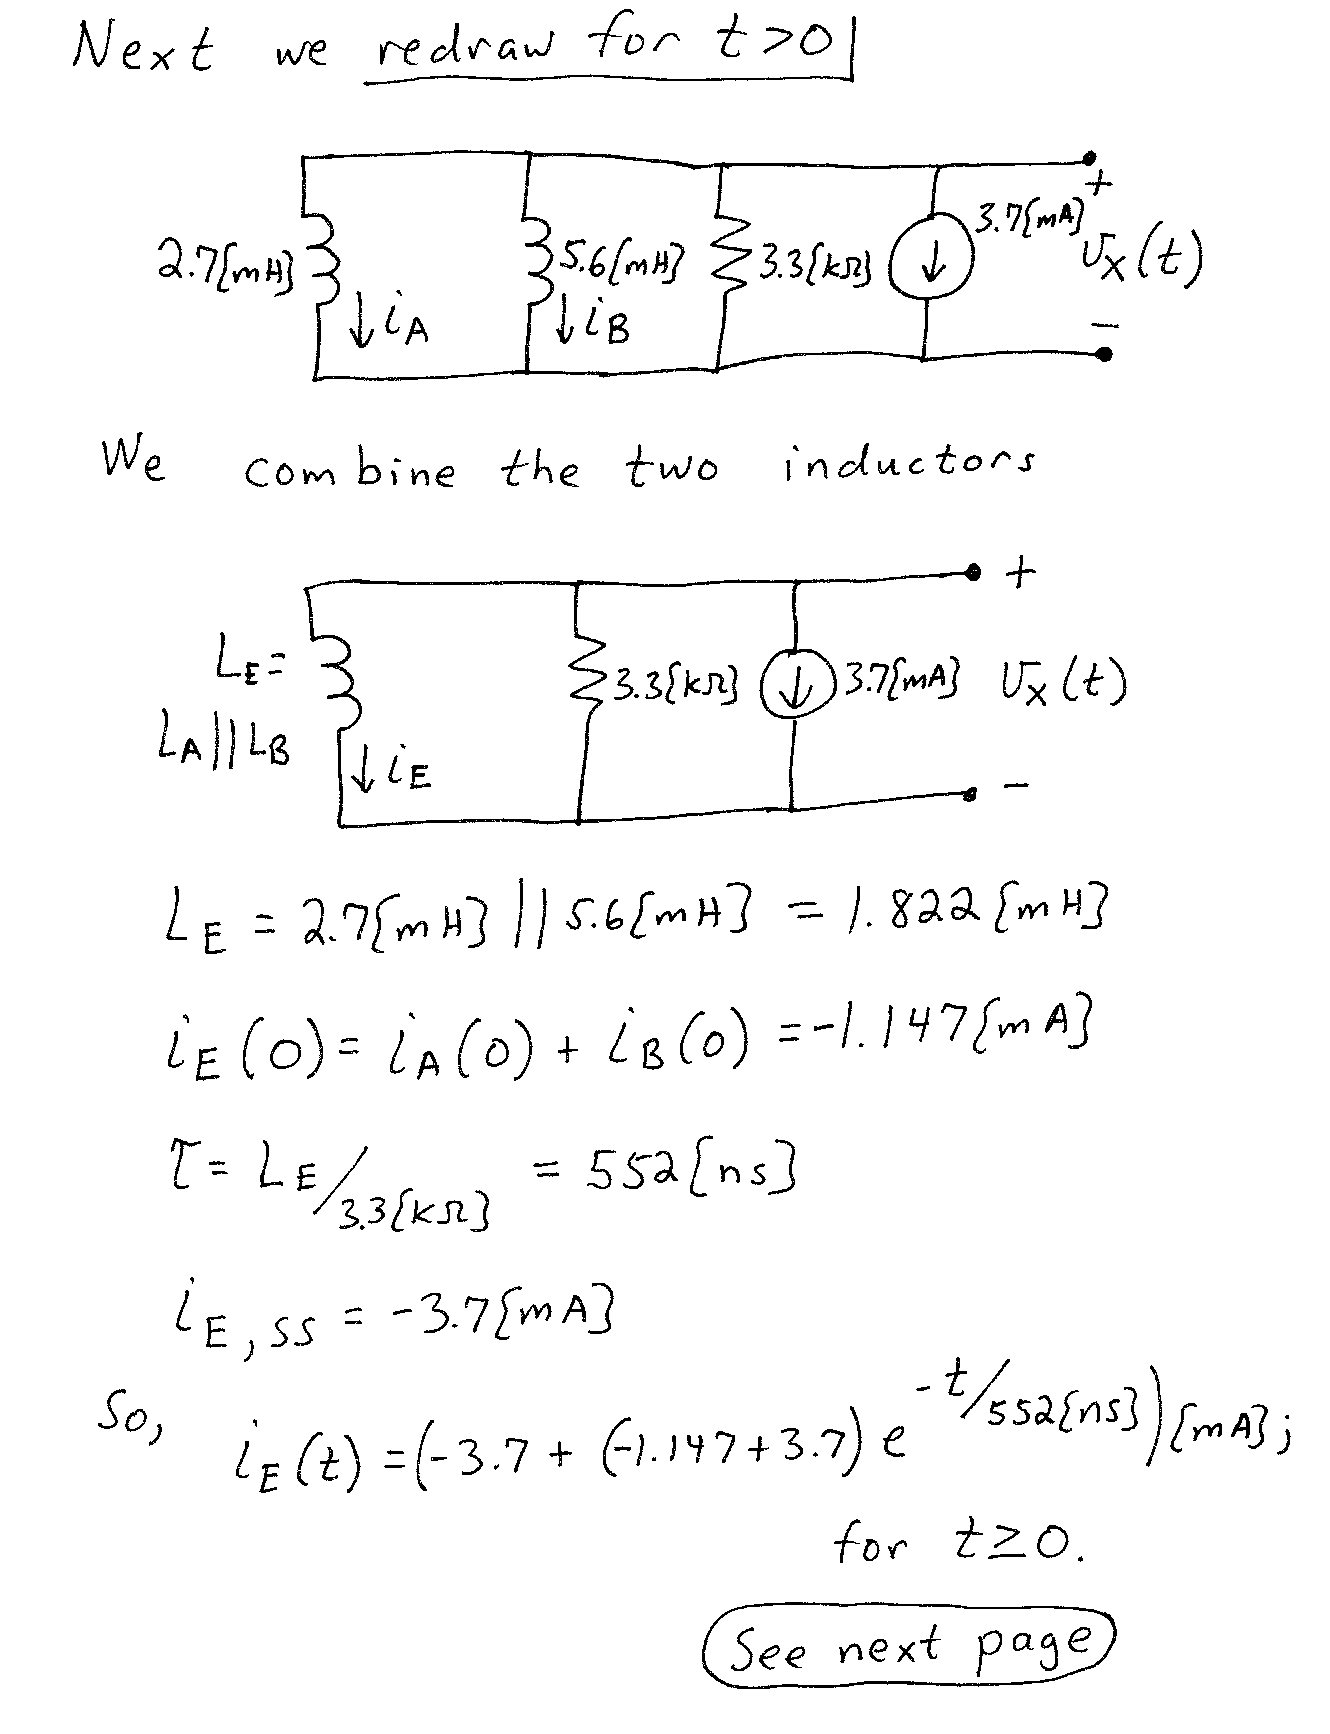 Next we redraw for t>0
3.7[mA] +
2.7[mH] 5.6[mH] 3.3[kΩ] vx(t)
↓iA ↓iB −
We combine the two inductors
+
LE= 3.3[kΩ] 3.7[mA] vx(t)
LA||LB ↓iE −
LE = 2.7[mH] || 5.6[mH] = 1.822[mH]
iE(0) = iA(0) + iB(0) = -1.147[mA]
τ = LE/3.3[kΩ] = 552[ns]
iE,SS = -3.7[mA]
So, iE(t) = (-3.7 + (-1.147+3.7) e^-t/552[ns])[mA];
for t≥0.
See next page